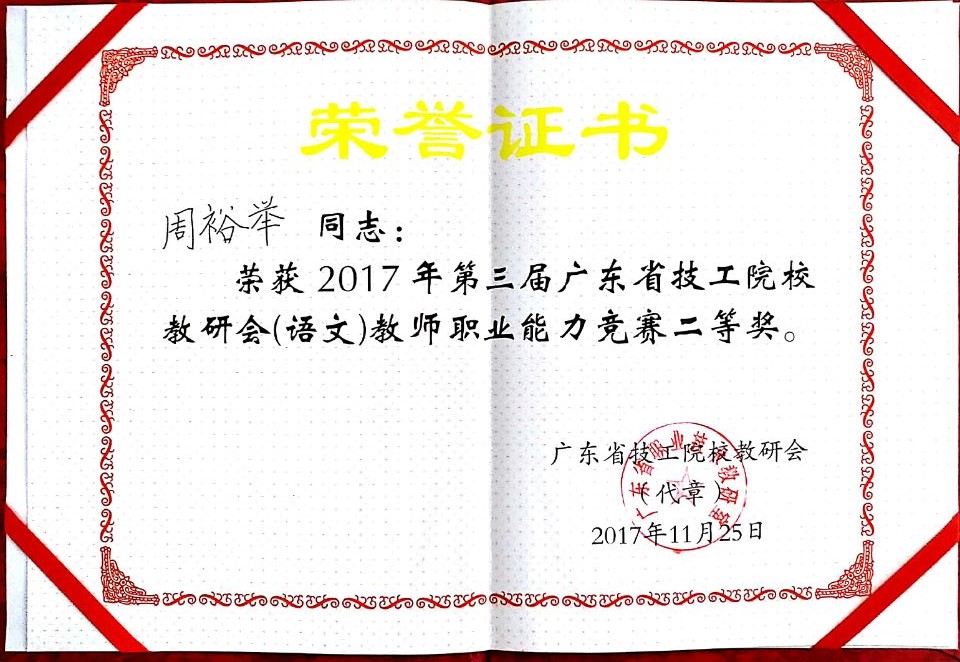 荣誉证书
周裕举 同志：
荣获2017年第三届广东省技工院校
教研会(语文)教师职业能力竞赛二等奖。
广东省技工院校教研会
（代章）
2017年11月25日
广东省职业技术教研室